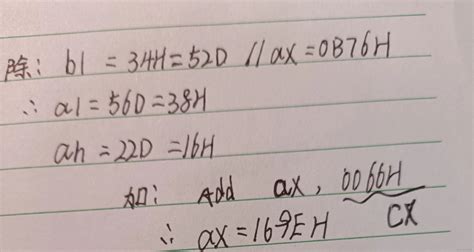 除: bl = 34H = 52D // ax = 0B76H
∴ al = 56D = 38H
ah = 22D = 16H
加: Add ax, 0066H
∴ ax = 169EH CX